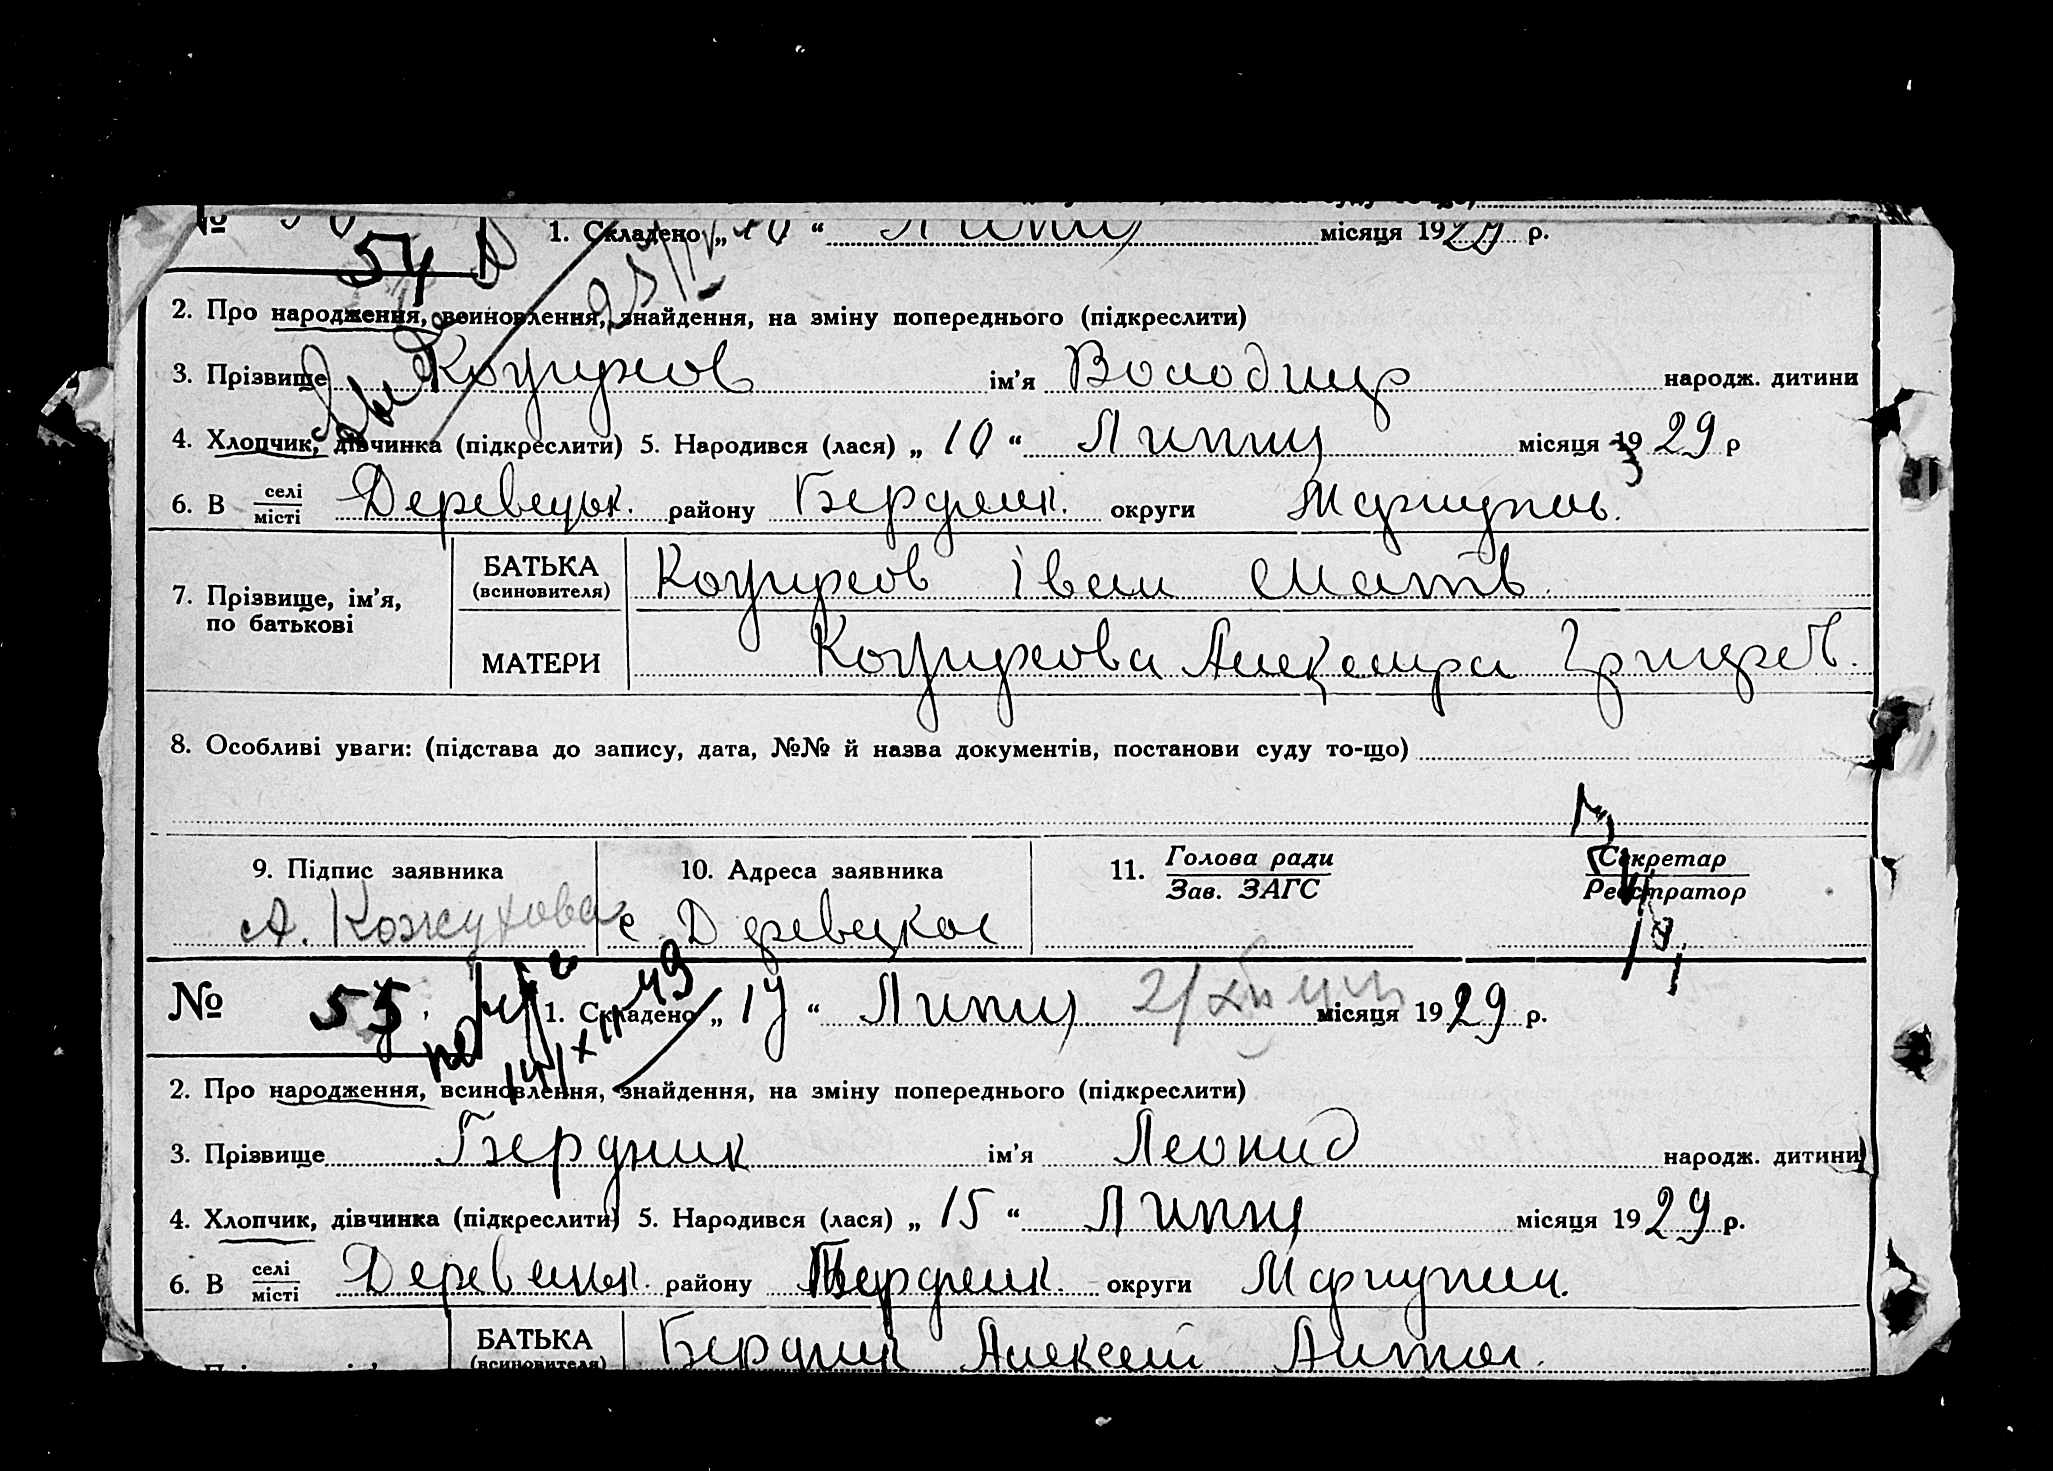 № 1. Складено „ 10 “ Липц місяця 1929 р.
54
2. Про народження, всиновлення, знайдення, на зміну попереднього (підкреслити)
3. Прізвище Кожухов ім'я Володимр народж. дитини
4. Хлопчик, дівчинка (підкреслити) 5. Народився (лася) „ 10 “ Липц місяця 19 29 р
6. В селі місті Деревецьк. району Бердянк. округи Маріупіль.
7. Прізвище, ім'я, по батькові
БАТЬКА (всиновителя) Кожухов Іван Матв.
МАТЕРИ Кожухова Александра Григор.
8. Особливі уваги: (підстава до запису, дата, №№ й назва документів, постанови суду то-що)
9. Підпис заявника 10. Адреса заявника 11. Голова ради Зав. ЗАГС Секретар Реєстратор
А. Кожухова с Деревецкое
№ 55 1. Складено „ 17 “ Липц місяця 1929 р.
2. Про народження, всиновлення, знайдення, на зміну попереднього (підкреслити)
3. Прізвище Бердник ім'я Леонид народж. дитини
4. Хлопчик, дівчинка (підкреслити) 5. Народився (лася) „ 15 “ Липц місяця 1929 р.
6. В селі місті району Бердянк. округи
БАТЬКА (всиновителя) Бердник Алексей Антон.